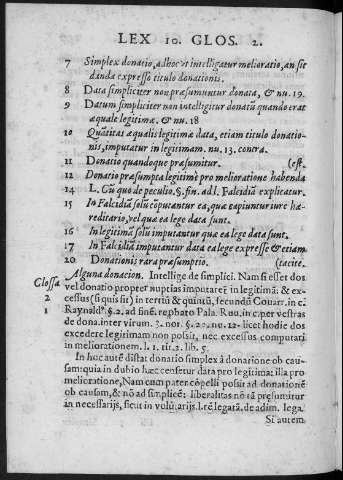 LEX 10. GLOS. 2.
7 Simplex donatio, ad hoc vt intelligatur melioratio, an sit
dãnda expresso titulo donationis.
8 Data simpliciter non præsumuntur donata, & nu. 19.
9 Datum simpliciter non intelligitur donatũ quando erat
æquale legitimæ. & nu. 18
10 Quãtitas æqualis legitimæ data, etiam titulo donatio-
nis, imputatur in legitimam. nu. 13. contra.
11 Donatio quandoque præsumitur. (est.
12 Donatio præsumpta legitimè pro melioratione habenda
14 L. Cũ quo de peculio. §. fin. ad l. Falcidiã explicatur.
15 In Falcidiã solũ cõputantur ea, quæ capiuntur iure hæ-
reditario, vel quæ ea lege data sunt.
16 In legitimã solũ imputantur quæ ea lege data sunt.
17 In Falcidiã imputantur data ea lege expresse & etiam
20 Donationis rara præsumptio. (tacite.
Glossa Alguna donacion. Intellige de simplici. Nam si esset dos
2 vel donatio propter nuptias imputaret̃ in legitimã: & in ex-
cessus (si quis sit) in tertiũ & quintũ, secundũ Couar. in c.
1 Raynald9. §. 2. ad fine. rephato Pala. Ruu. in c. per vestras
de dona. inter virum. 3. not. §. 20. nu. 12. licet hodie dos
excedere legitimam non possit, nec excessus computari
in meliorationem. l. 1. tit. 2. lib. 5.
In hoc autẽ distat donatio simplex à donatione ob cau-
sam: quia in dubio hæc censetur data pro legitima: illa pro
melioratione, Nam cum pater cõpelli possit ad donationẽ
ob causam, & nõ ad simplicẽ: liberalitas nõ tã præsumitur
in necessarijs, sicut in volũtarijs. l. rẽ legatã. de adim. lega.
Si autem